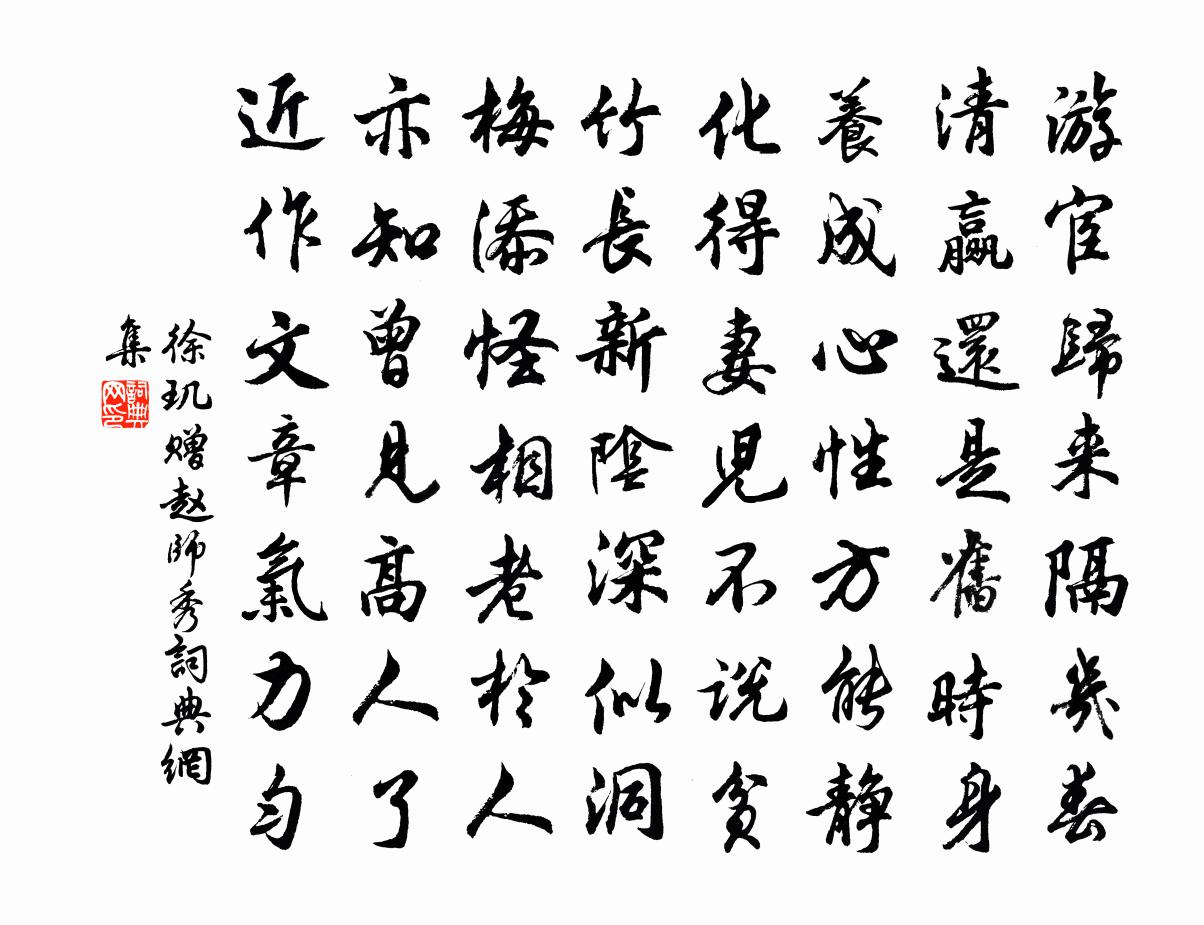 游宦歸来隔幾春
清贏還是舊時身
養成心性方能静
化得妻兒不说貧
竹長新陰深似洞
梅添怪相老於人
亦知曾見高人了
近作文章氣力匀
徐玑赠赵師秀詞典網
集
詞典网印